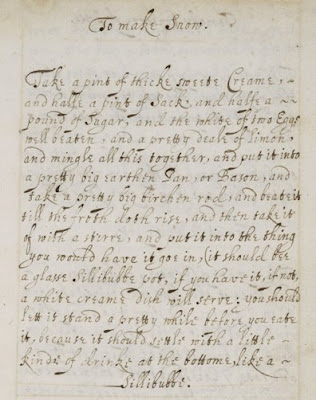 To make Snow.
Take a pint of thicke sweete Creame,
and halfe a pint of Sack, and halfe a
pound of Sugar, and the white of two Eggs
well beaten, and a pretty deale of Limon,
and mingle all this together, and put it into
a pretty big earthen Pan, or Bason, and
take a pretty big birchen rod, and beate it
till the froth doth rise, and then take it
of with a stirre, and put it into the thing
you would have it goe in, (it should bee
a glasse Sillibubbe pot, if you have it, if not,
a white creame dish will serve: you should
lett it stand a pretty while before you eate
it, because it should settle with a little
kinde of drinke at the bottome, like a
Sillibubbe.